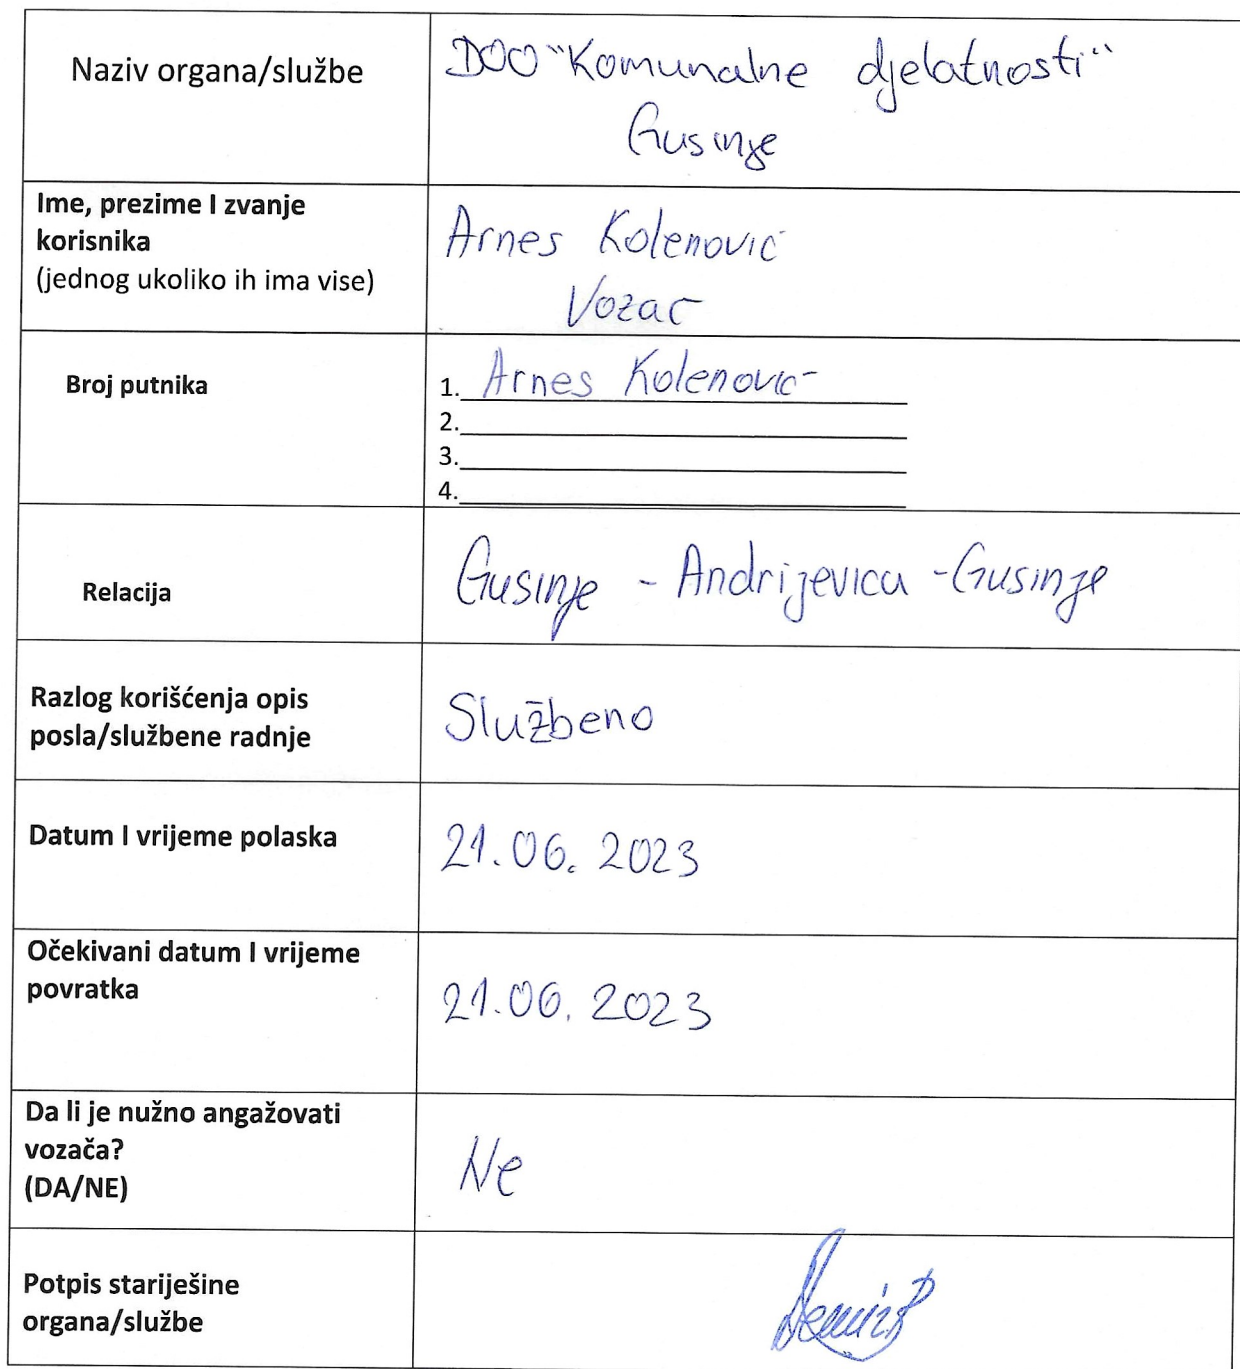 Naziv organa/službe
DOO "Komunalne djelatnosti"
Gusinje
Ime, prezime I zvanje
korisnika
(jednog ukoliko ih ima vise)
Arnes Kolenović
Vozac
Broj putnika
1. Arnes Kolenović
2.
3.
4.
Relacija
Gusinje - Andrijevica - Gusinje
Razlog korišćenja opis
posla/službene radnje
Službeno
Datum I vrijeme polaska
21.06. 2023
Očekivani datum I vrijeme
povratka
21.06. 2023
Da li je nužno angažovati
vozača?
(DA/NE)
Ne
Potpis starješine
organa/službe